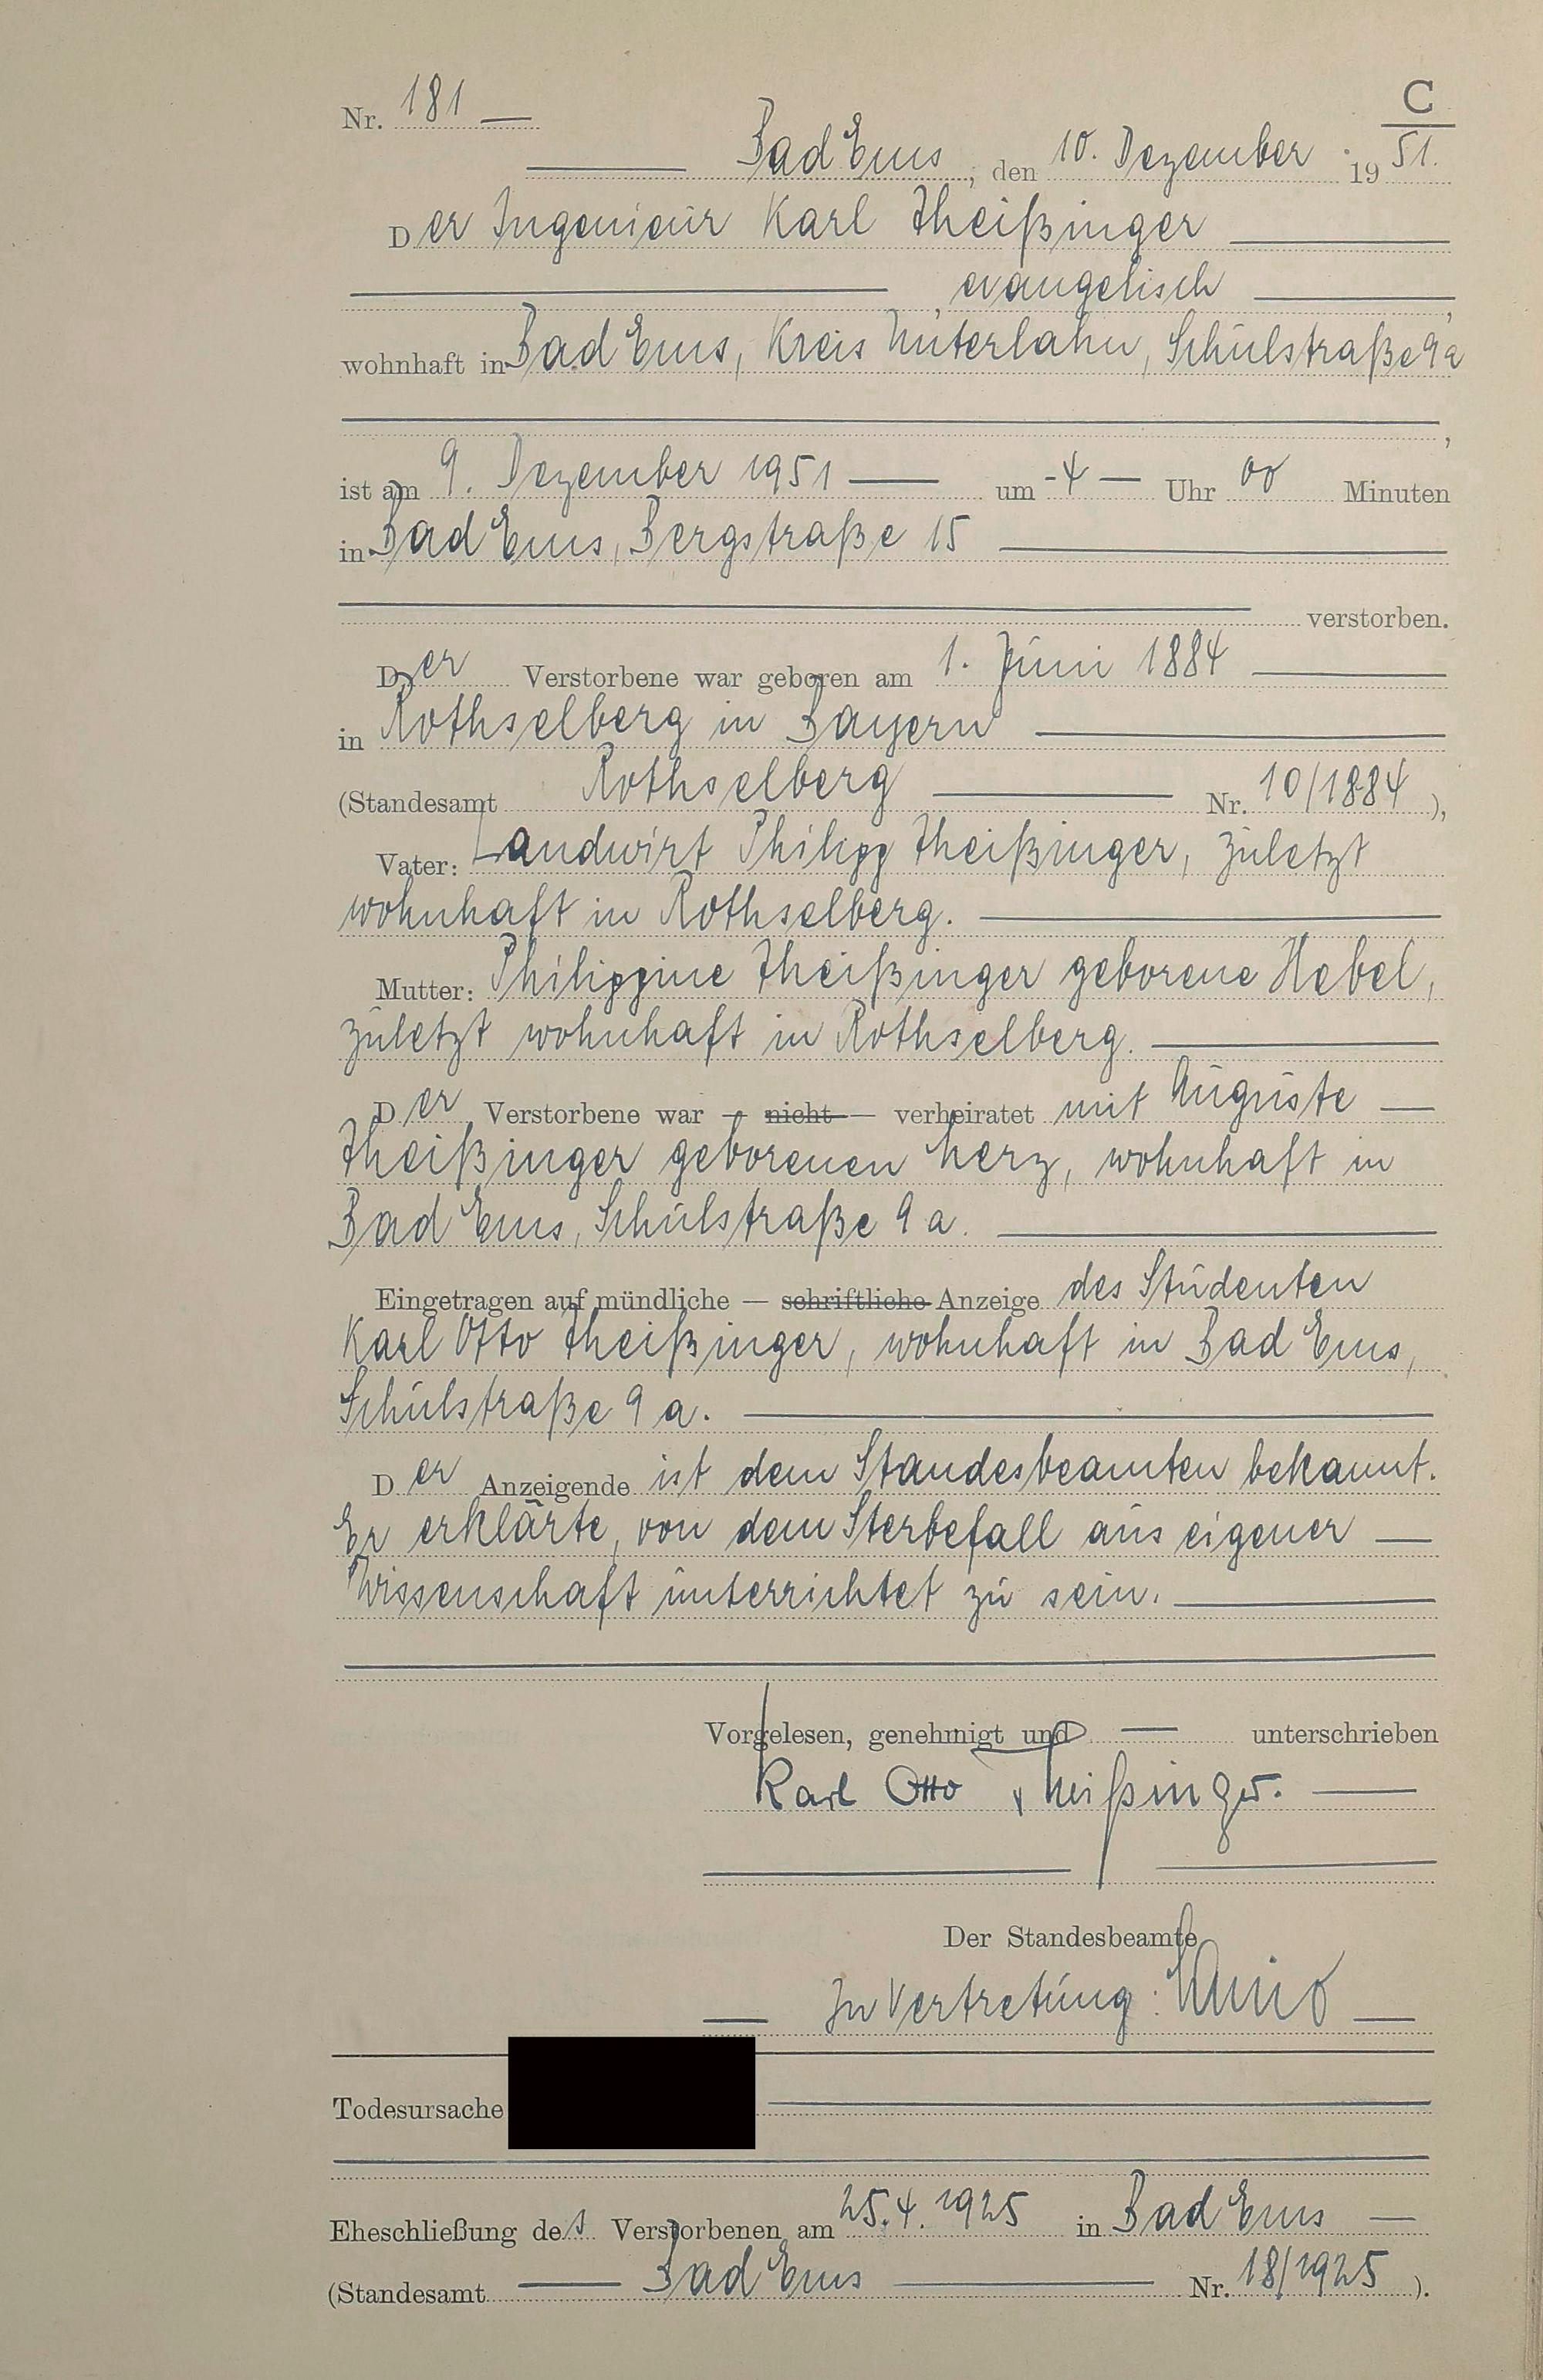 C
Nr. 181
Bad Ems, den 10. Dezember 1951.
Der Ingenieur Karl Theißinger
, evangelisch,
wohnhaft in Bad Ems, Kreis Unterlahn, Schulstraße 9a
,
ist am 9. Dezember 1951 um -4- Uhr 00 Minuten
in Bad Ems, Bergstraße 15
verstorben.
Der Verstorbene war geboren am 1. Juni 1884
in Rothselberg in Bayern
(Standesamt Rothselberg Nr. 10/1884),
Vater: Landwirt Philipp Theißinger, zuletzt
wohnhaft in Rothselberg.
Mutter: Philippine Theißinger geborene Hebel,
zuletzt wohnhaft in Rothselberg.
Der Verstorbene war — nicht — verheiratet mit Auguste
Theißinger geborenen Herz, wohnhaft in
Bad Ems, Schulstraße 9a.
Eingetragen auf mündliche — schriftliche Anzeige des Studenten
Karl Otto Theißinger, wohnhaft in Bad Ems,
Schulstraße 9a.
Der Anzeigende ist dem Standesbeamten bekannt.
Er erklärte, von dem Sterbefall aus eigener
Wissenschaft unterrichtet zu sein.
Vorgelesen, genehmigt und unterschrieben
Karl Otto Theißinger.
Der Standesbeamte
In Vertretung:
Todesursache
Eheschließung des Verstorbenen am 25.4.1925 in Bad Ems
(Standesamt Bad Ems Nr. 18/1925).